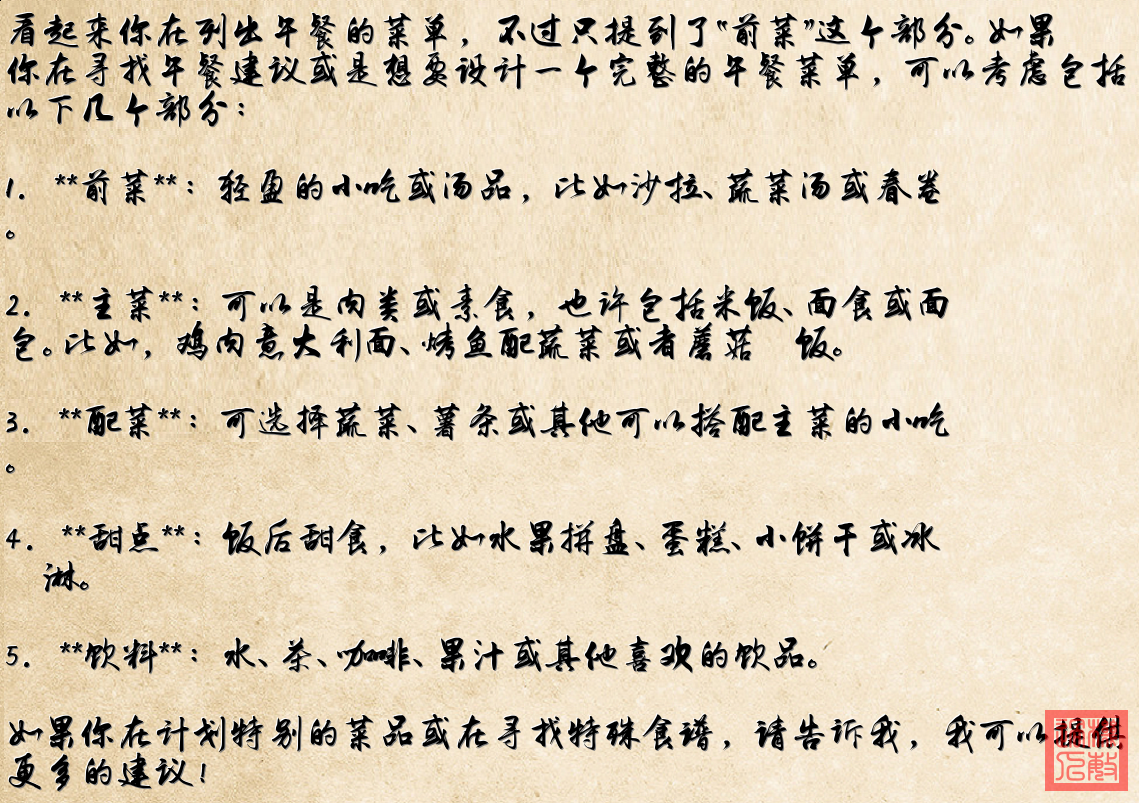 看起来你在列出午餐的菜单，不过只提到了“前菜”这个部分。如果
你在寻找午餐建议或是想要设计一个完整的午餐菜单，可以考虑包括
以下几个部分：
1. **前菜**：轻盈的小吃或汤品，比如沙拉、蔬菜汤或春卷
。
2. **主菜**：可以是肉类或素食，也许包括米饭、面食或面
包。比如，鸡肉意大利面、烤鱼配蔬菜或者蘑菇 饭。
3. **配菜**：可选择蔬菜、薯条或其他可以搭配主菜的小吃
。
4. **甜点**：饭后甜食，比如水果拼盘、蛋糕、小饼干或冰
淋。
5. **饮料**：水、茶、咖啡、果汁或其他喜欢的饮品。
如果你在计划特别的菜品或在寻找特殊食谱，请告诉我，我可以提供
更多的建议！